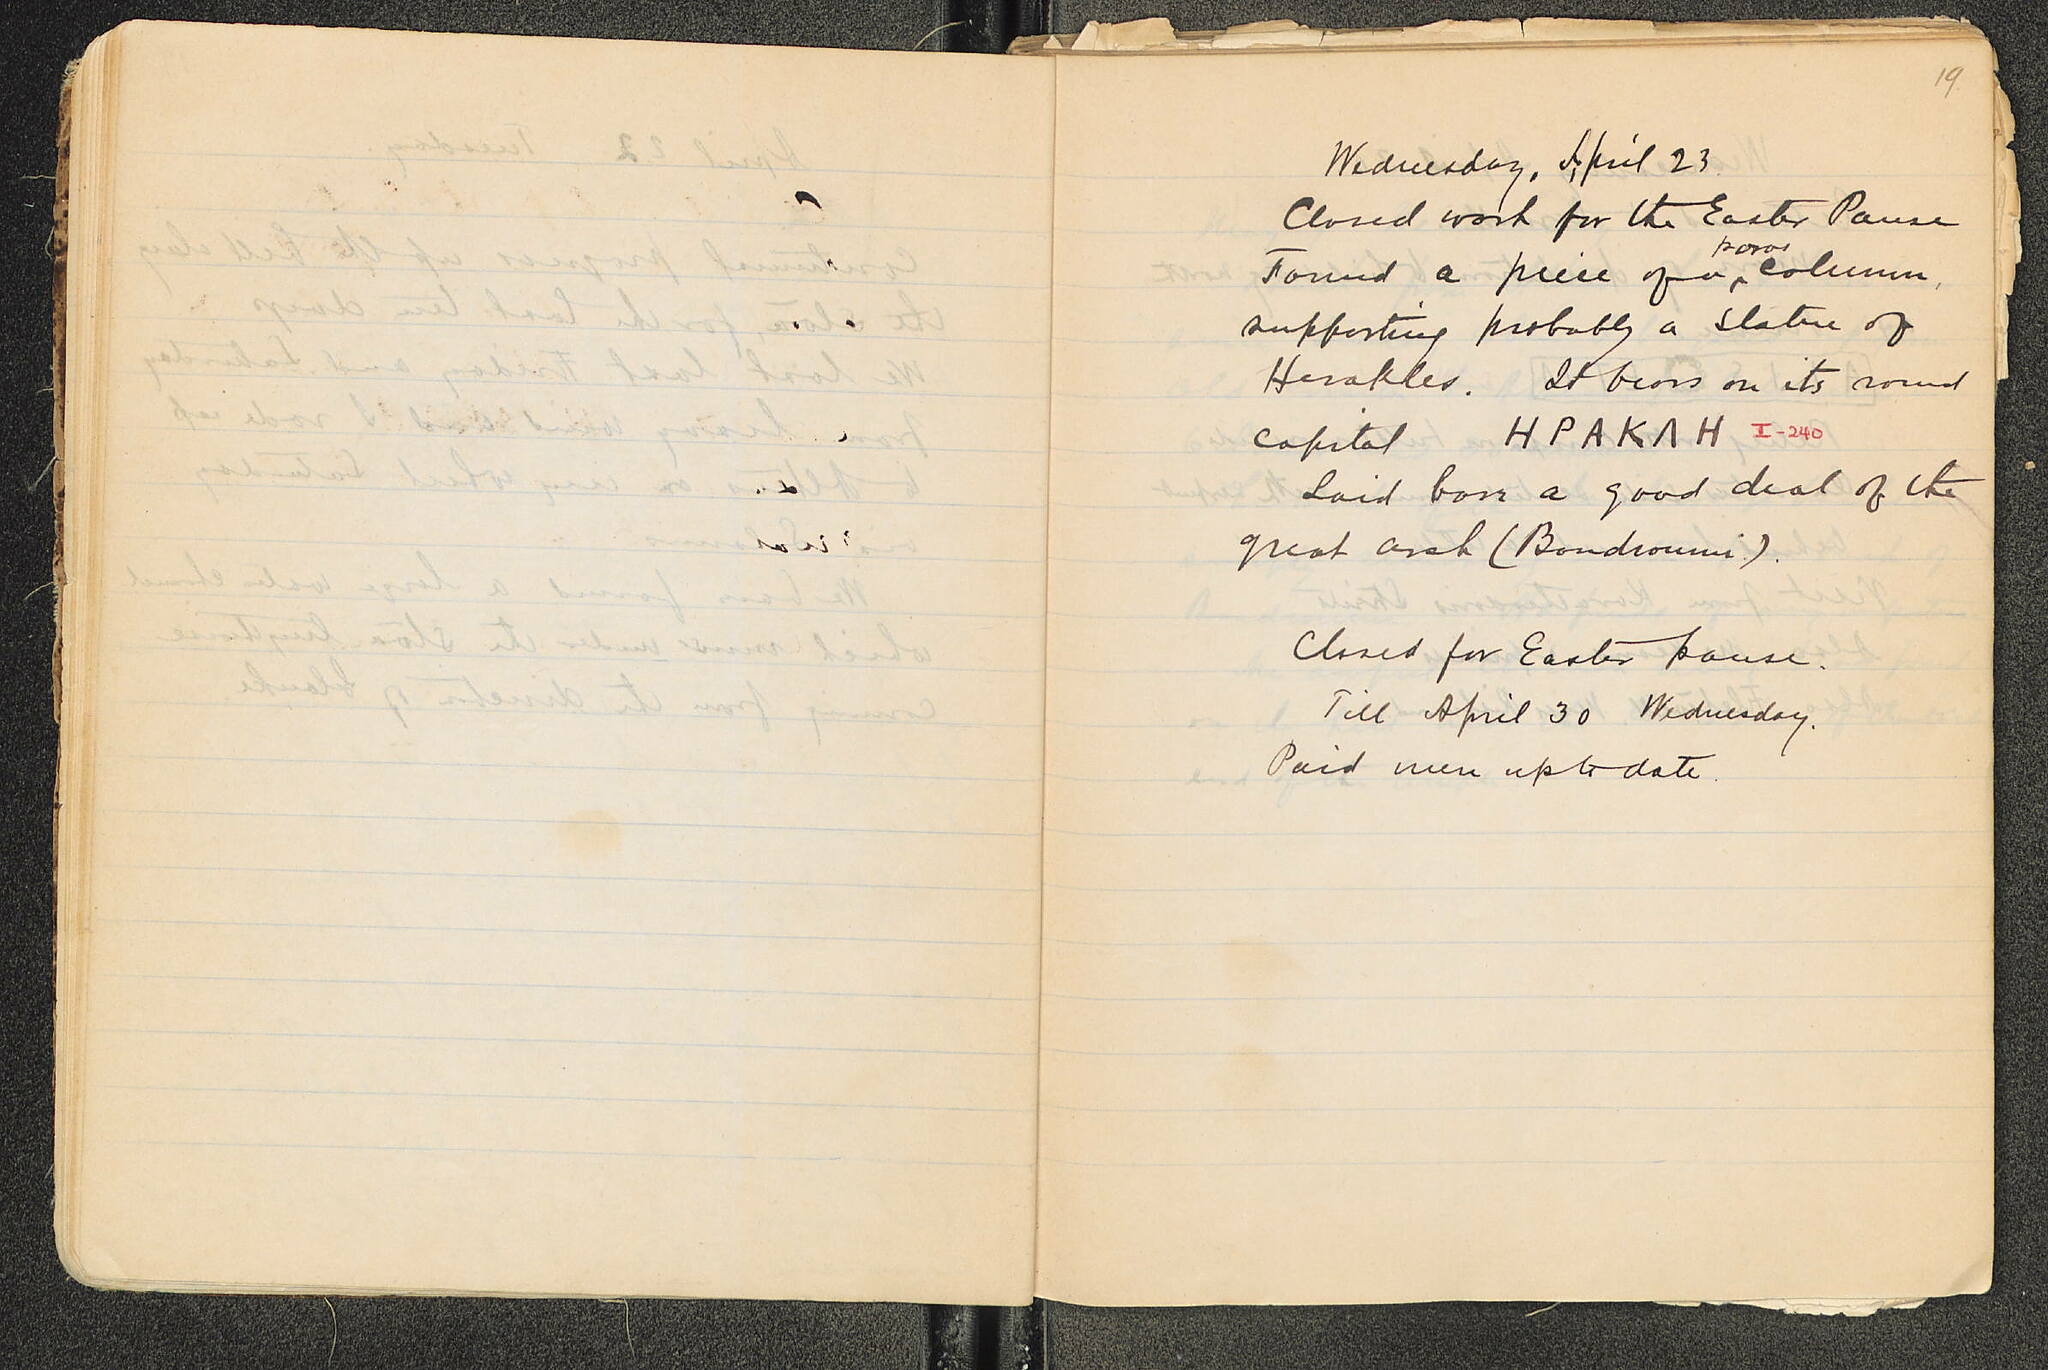 19
Wednesday, April 23.
Closed work for the Easter Pause
Found a piece of a poros column,
supporting probably a statue of
Herakles. It bears on its round
capital ΗΡΑΚΛΗ I-240
Laid bare a good deal of the
great arch (Boudroumi).
Closed for Easter pause.
Till April 30 Wednesday.
Paid men up to date.